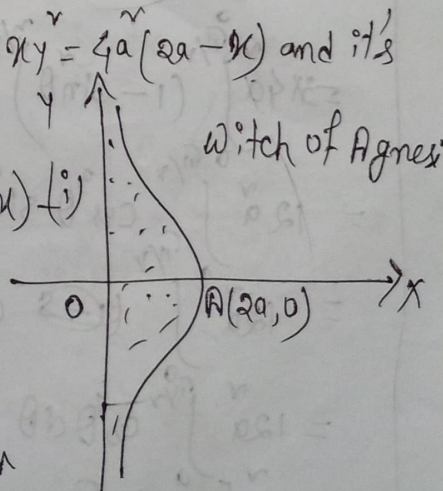 xy² = 4a²(2a-x) and it's
Y
Witch of Agnesi
x) -(i)
O A(2a, 0) X